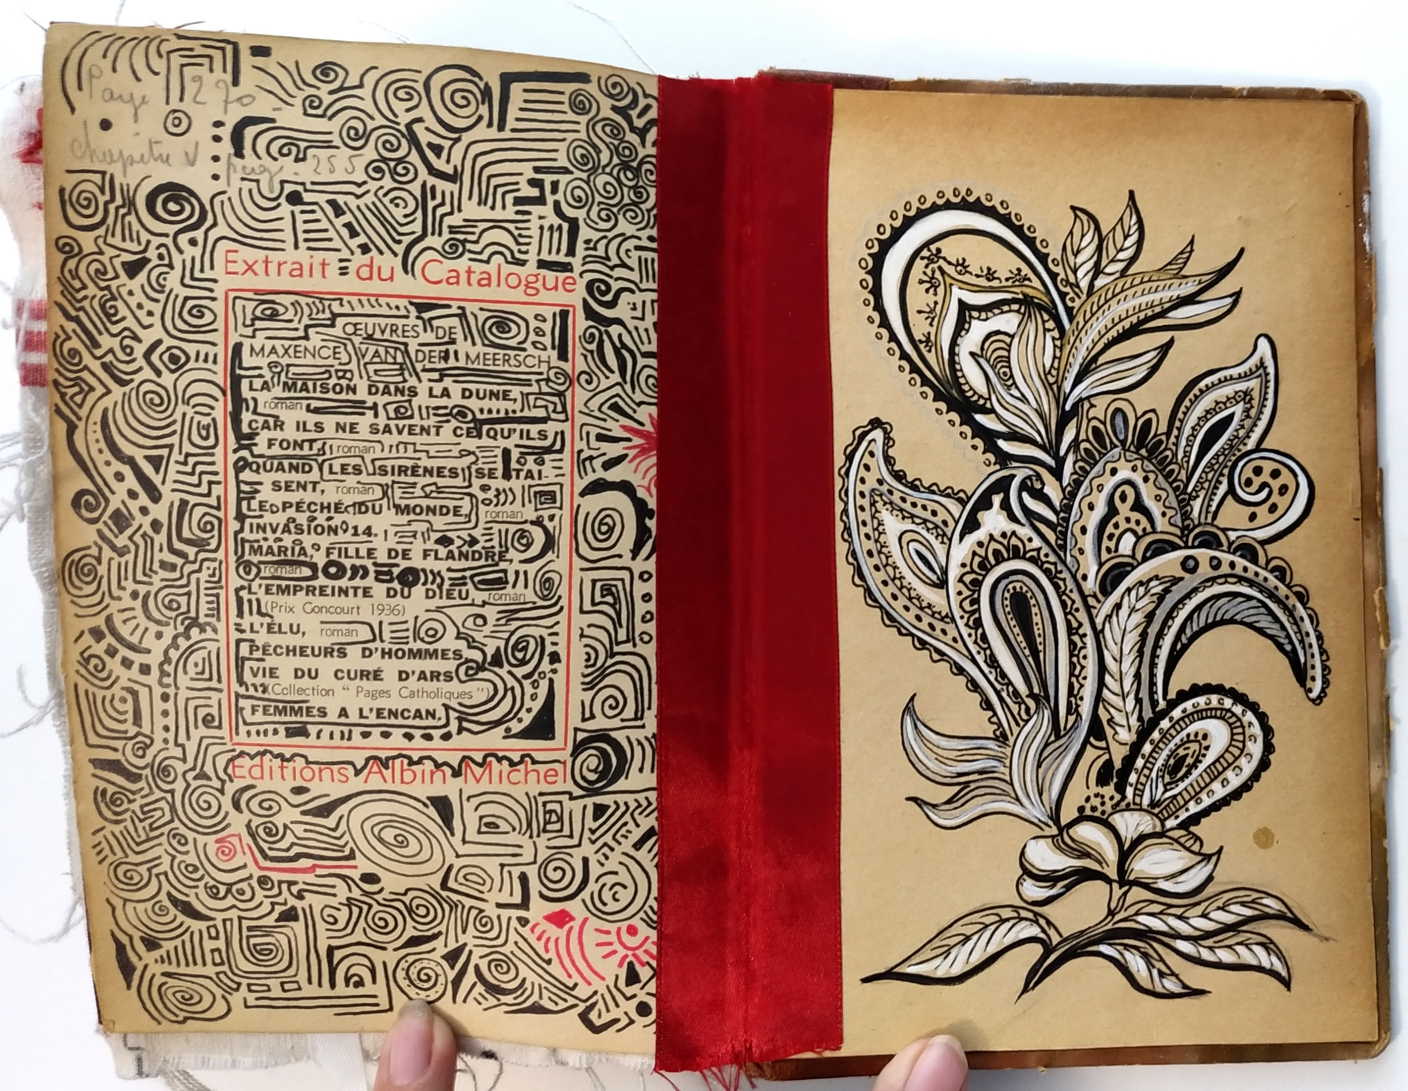 Page 270
chapitre V page 255
Extrait du Catalogue
ŒUVRES DE
MAXENCE VAN DER MEERSCH
LA MAISON DANS LA DUNE,
roman
CAR ILS NE SAVENT CE QU'ILS
FONT, roman
QUAND LES SIRÈNES SE TAI-
SENT, roman
LE PÉCHÉ DU MONDE, roman
INVASION 14.
MARIA, FILLE DE FLANDRE
roman
L'EMPREINTE DU DIEU, roman
(Prix Goncourt 1936)
L'ÉLU, roman
PÊCHEURS D'HOMMES
VIE DU CURÉ D'ARS
(Collection " Pages Catholiques ")
FEMMES A L'ENCAN.
Editions Albin Michel